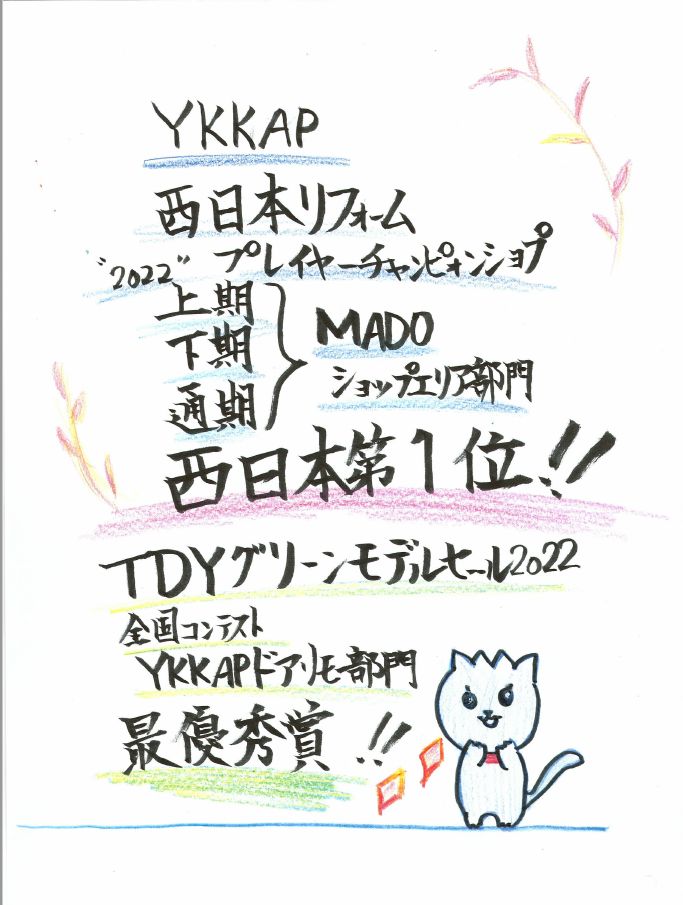 YKKAP
西日本リフォーム
"2022" プレイヤーチャンピォンショプ
上期
下期
通期
MADO
ショップエリア部門
西日本第1位!!
TDYグリーンモデルセール2022
全国コンテスト
YKKAPドアリモ部門
最優秀賞!!